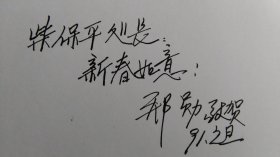 柴保平处长：
新春如意！
邢勋 敬贺
91.2.